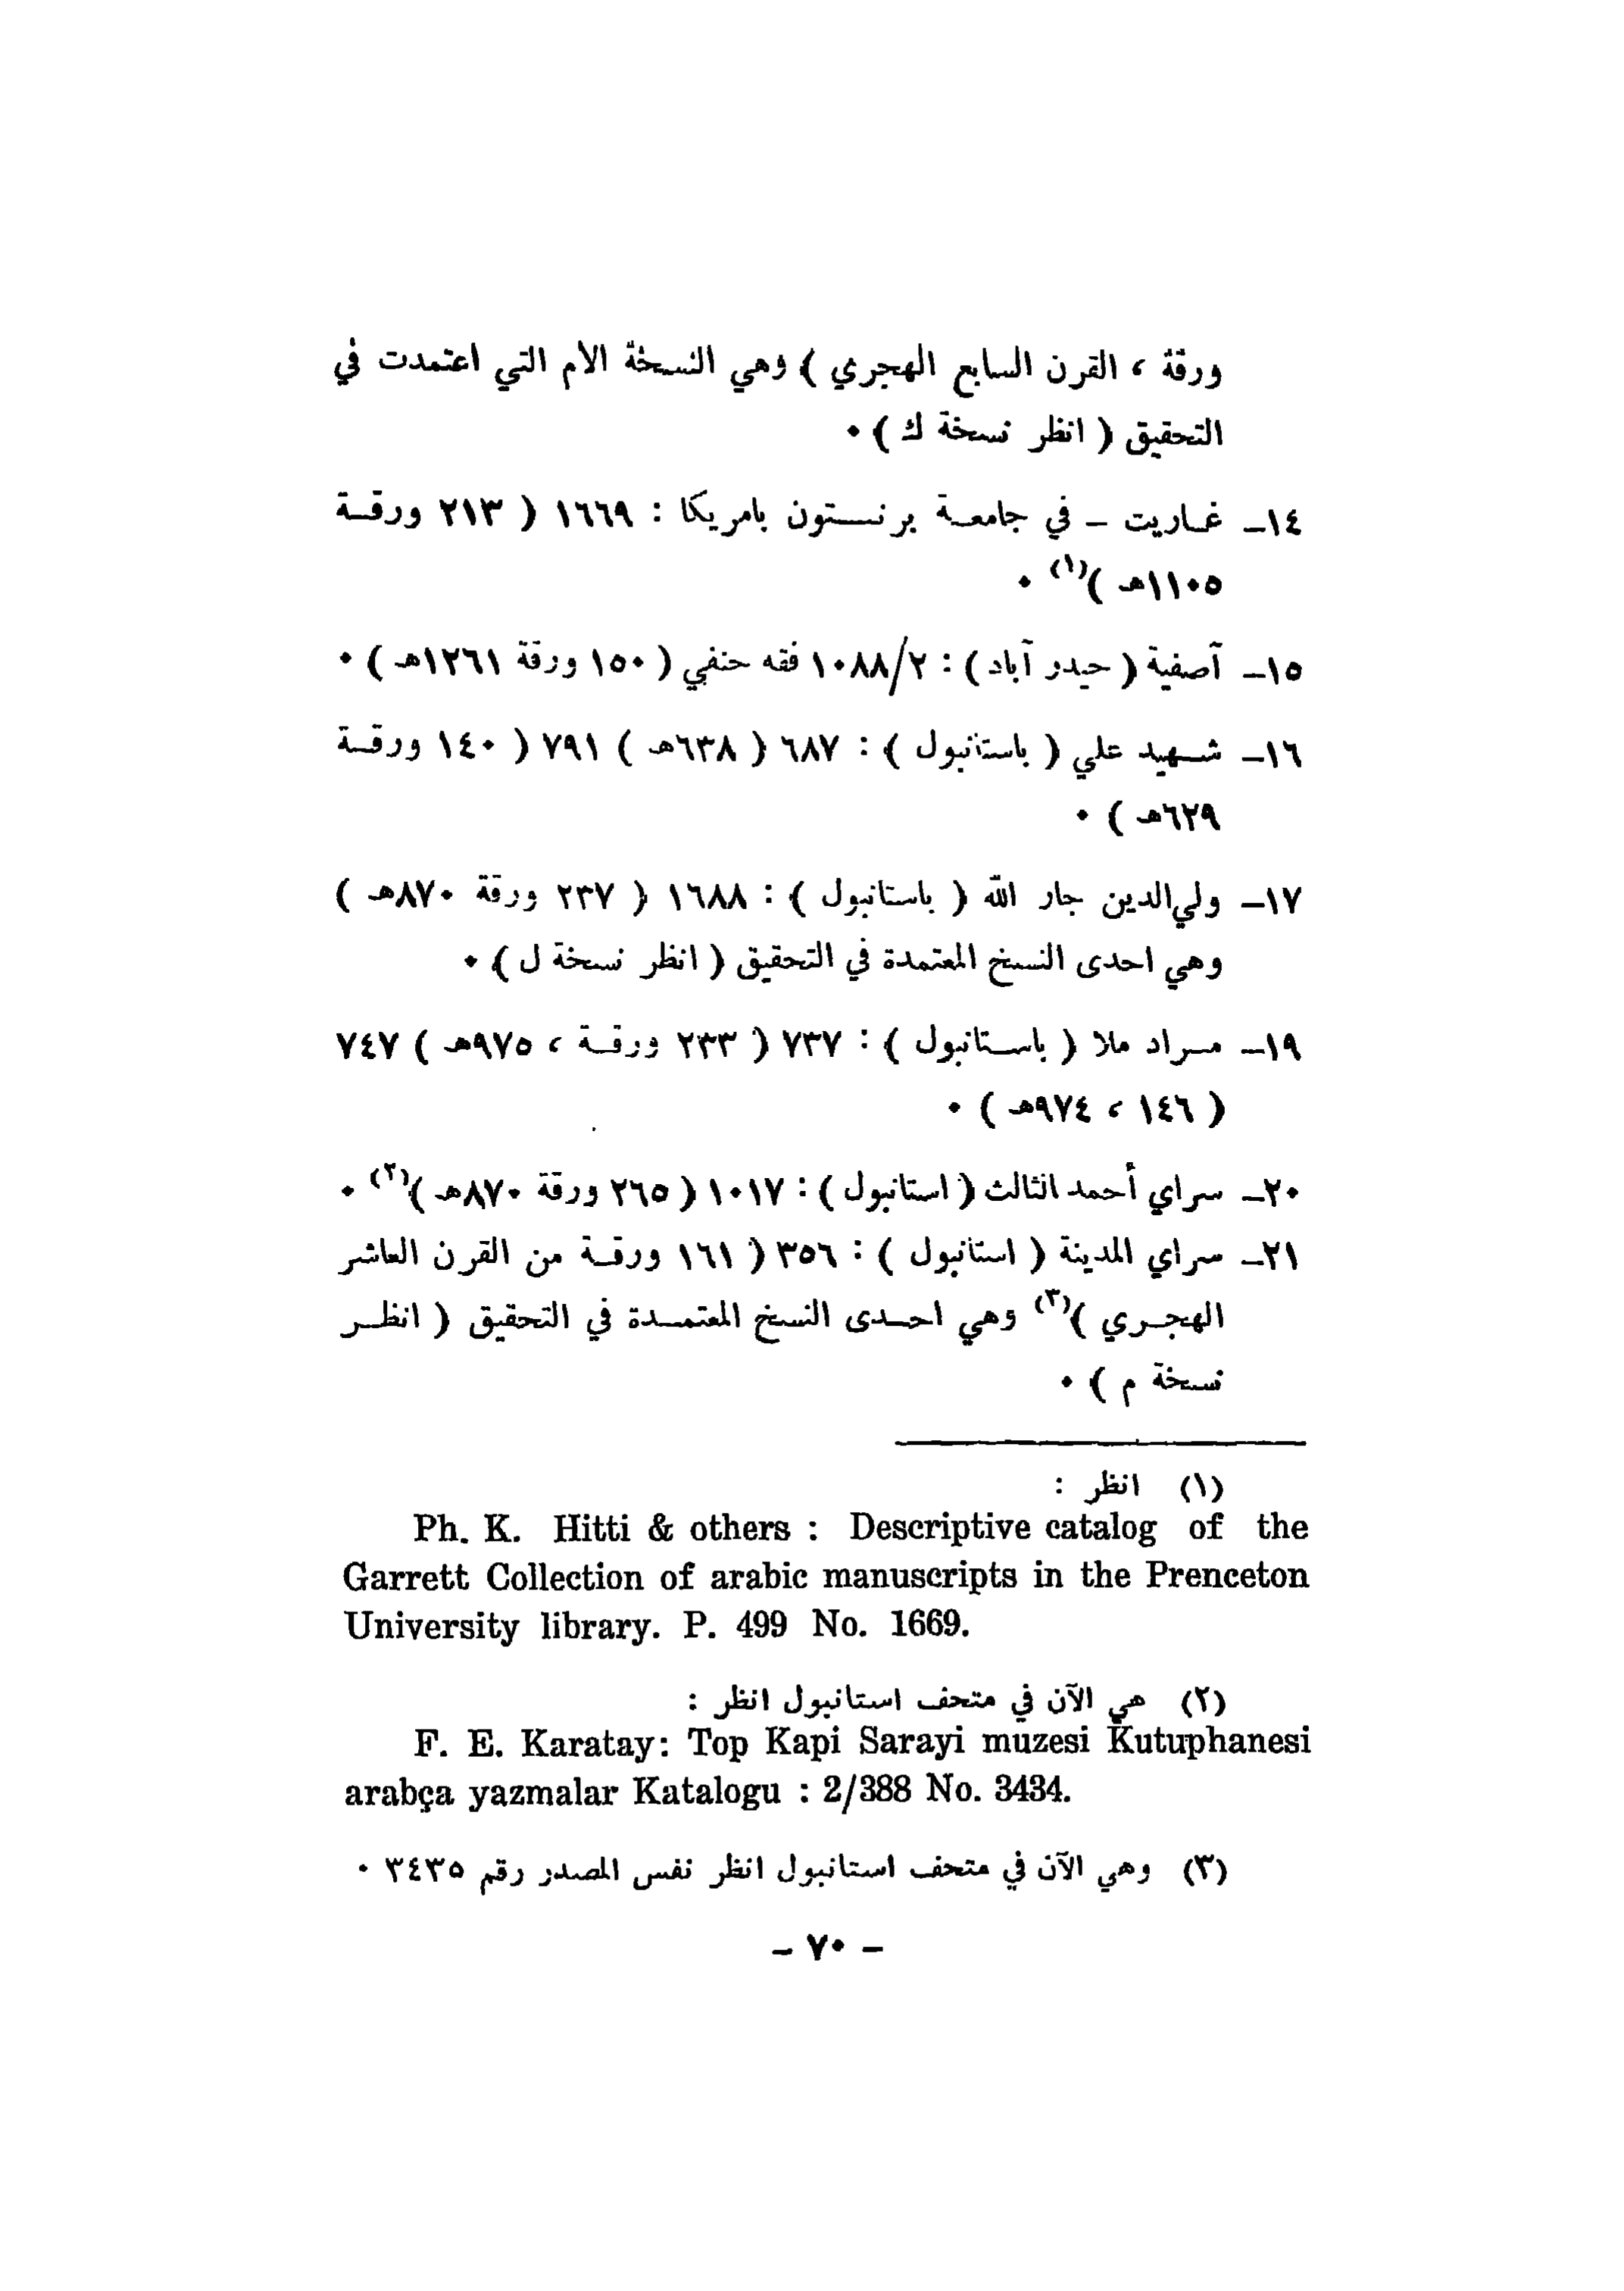 ورقة ، القرن السابع الهجري ) وهي النسخة الأم التي اعتمدت في
التحقيق ( انظر نسخة ك ) ٠
١٤ــ غـاريت ــ في جامعـة برنـستون بامريكا : ١٦٦٩ ( ٢١٣ ورقـة
١١٠٥هـ )(١) ٠
١٥ــ آصفية ( حيدر آباد ) : ١٠٨٨/٢ فقه حنفي ( ١٥٠ ورقة ١٢٦١هـ ) ٠
١٦ــ شـهيد علي ( باستانبول ) : ٦٨٧ ( ٦٣٨هـ ) ٧٩١ ( ١٤٠ ورقـة
٦٢٩هـ ) ٠
١٧ــ ولي‌الدين جار الله ( باستانبول ) : ١٦٨٨ ( ٢٣٧ ورقة ٨٧٠هـ )
وهي احدى النسخ المعتمدة في التحقيق ( انظر نسخة ل ) ٠
١٩ــ مـراد ملا ( باسـتانبول ) : ٧٣٧ ( ٢٣٣ ورقـة ، ٩٧٥هـ ) ٧٤٧
( ١٤٦ ، ٩٧٤هـ ) ٠
٢٠ــ سراي أحمد الثالث ( استانبول ) : ١٠١٧ ( ٢٦٥ ورقة ٨٧٠هـ )(٢) ٠
٢١ــ سراي المدينة ( استانبول ) : ٣٥٦ ( ١٦١ ورقـة من القرن العاشر
الهجـري )(٣) وهي احـدى النسخ المعتمـدة في التحقيق ( انظـر
نسخة م ) ٠
(١) انظر :
Ph. K. Hitti & others : Descriptive catalog of the
Garrett Collection of arabic manuscripts in the Prenceton
University library. P. 499 No. 1669.
(٢) هي الآن في متحف استانبول انظر :
F. E. Karatay: Top Kapi Sarayi muzesi Kutuphanesi
arabça yazmalar Katalogu : 2/388 No. 3434.
(٣) وهي الآن في متحف استانبول انظر نفس المصدر رقم ٣٤٣٥ ٠
ــ ٧٠ ــ